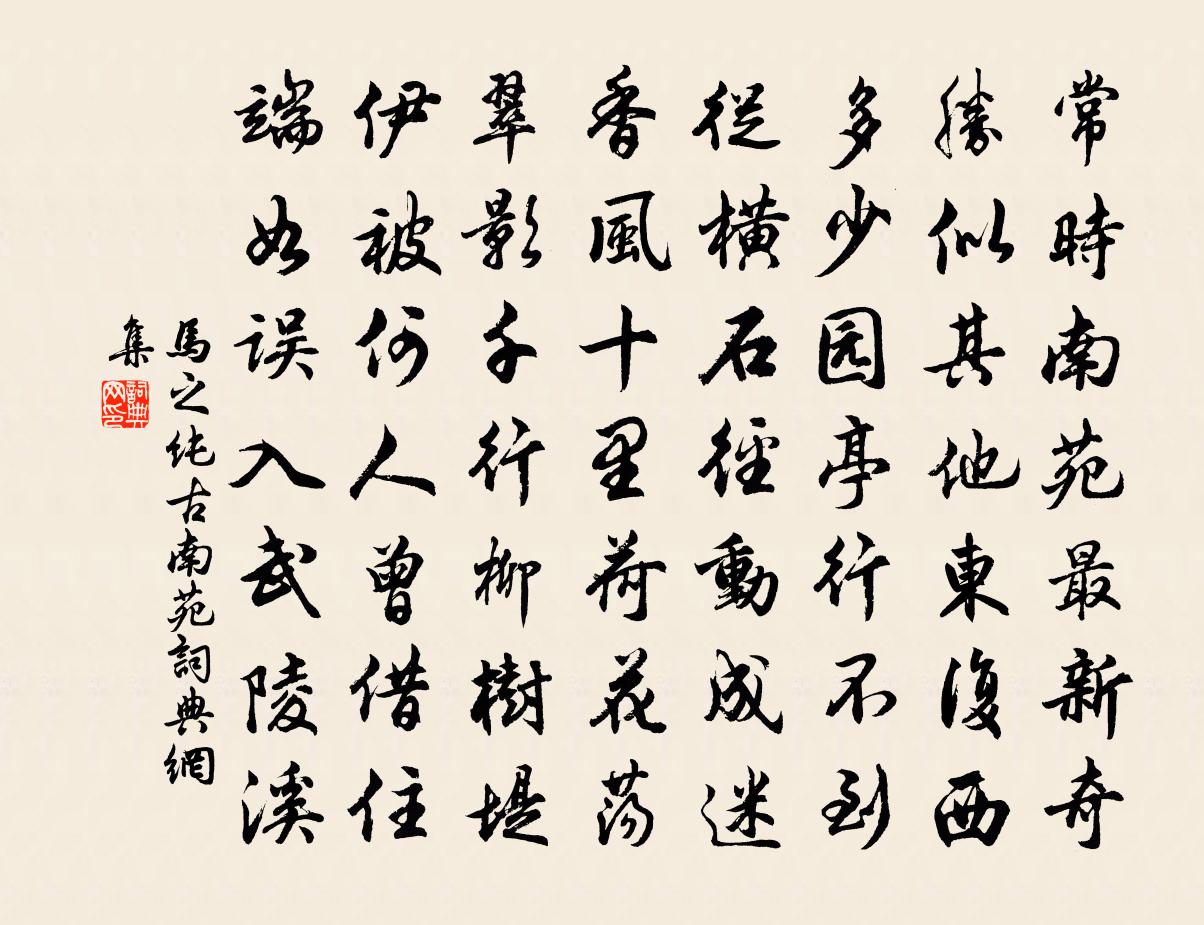 常時南苑最新奇
勝似其他東復西
多少园亭行不到
從橫石徑動成迷
香風十里荷花蕩
翠影千行柳樹堤
伊被何人曾借住
端如误入武陵溪
馬之纯古南苑詞典網
集
詞典网印